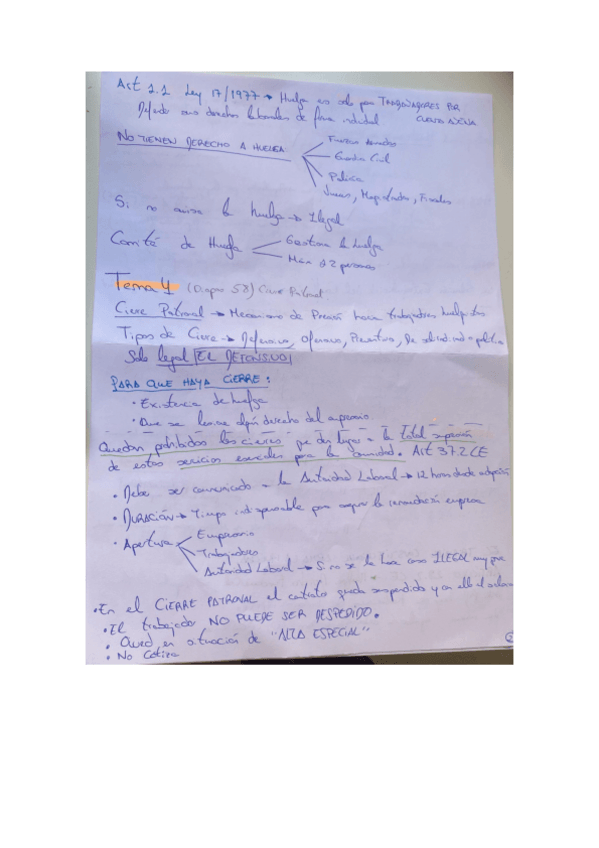 Art 1.1 Ley 17/1977 → Huelga es solo para TRABAJADORES POR
Defiende sus derechos laborales de forma individual CUENTA AJENA
NO TIENEN DERECHO A HUELGA
Fuerzas Armadas
Guardia Civil
Policía
Jueces, Magistrados, Fiscales
Si no avisa la huelga → Ilegal
Comité de Huelga
Gestiona la huelga
Máx 12 personas
Tema 4 (Diapo 58) Cierre Patronal
Cierre Patronal → Mecanismo de Presión hacia trabajadores huelguistas
Tipos de Cierre → Defensivo, Ofensivo, Preventivo, De solidaridad o político
Solo legal EL DEFENSIVO
PARA QUE HAYA CIERRE:
· Existencia de huelga
· Que se lesione algún derecho del empresario
Quedan prohibidos los cierres que den lugar a la total supresión
de estos servicios esenciales para la comunidad. Art 37.2 CE
· Debe ser comunicado a la Autoridad Laboral → 12 horas desde adopción
· DURACIÓN → Tiempo indispensable para asegurar la reanudación empresa
· Apertura
Empresario
Trabajadores
Autoridad Laboral → Si no se le hace caso ILEGAL
· En el CIERRE PATRONAL el contrato queda suspendido y con ello el salario
· El trabajador NO PUEDE SER DESPEDIDO.
· Queda en situación de "ALTA ESPECIAL"
· No Cotiza